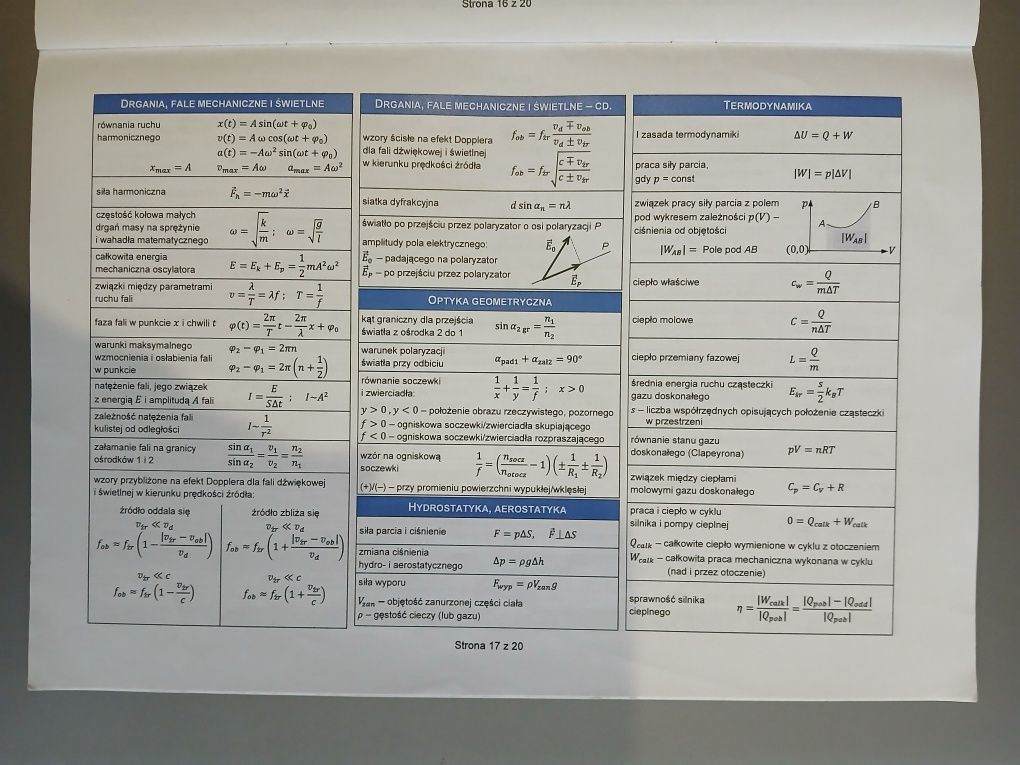 Strona 16 z 20
DRGANIA, FALE MECHANICZNE I ŚWIETLNE
równania ruchu
harmonicznego
x(t) = A sin(ωt + φ₀)
v(t) = A ω cos(ωt + φ₀)
a(t) = −Aω² sin(ωt + φ₀)
xₘₐₓ = A vₘₐₓ = Aω aₘₐₓ = Aω²
siła harmoniczna F⃗ₕ = −mω²x⃗
częstość kołowa małych
drgań masy na sprężynie
i wahadła matematycznego
ω = √(k/m) ; ω = √(g/l)
całkowita energia
mechaniczna oscylatora
E = Eₖ + Eₚ = 1/2 mA²ω²
związki między parametrami
ruchu fali
v = λ/T = λf ; T = 1/f
faza fali w punkcie x i chwili t φ(t) = 2π/T t − 2π/λ x + φ₀
warunki maksymalnego
wzmocnienia i osłabienia fali
w punkcie
φ₂ − φ₁ = 2πn
φ₂ − φ₁ = 2π(n + 1/2)
natężenie fali, jego związek
z energią E i amplitudą A fali
I = E/(SΔt) ; I~A²
zależność natężenia fali
kulistej od odległości
I~ 1/r²
załamanie fali na granicy
ośrodków 1 i 2
sin α₁/sin α₂ = v₁/v₂ = n₂/n₁
wzory przybliżone na efekt Dopplera dla fali dźwiękowej
i świetlnej w kierunku prędkości źródła:
źródło oddala się
v_źr ≪ v_d
f_ob ≈ f_źr (1 − |v_źr − v_ob|/v_d)
v_źr ≪ c
f_ob ≈ f_źr (1 − v_źr/c)
źródło zbliża się
v_źr ≪ v_d
f_ob ≈ f_źr (1 + |v_źr − v_ob|/v_d)
v_źr ≪ c
f_ob ≈ f_źr (1 + v_źr/c)
DRGANIA, FALE MECHANICZNE I ŚWIETLNE – CD.
wzory ścisłe na efekt Dopplera
dla fali dźwiękowej i świetlnej
w kierunku prędkości źródła
f_ob = f_źr (v_d ∓ v_ob)/(v_d ± v_źr)
f_ob = f_źr √((c ∓ v_źr)/(c ± v_źr))
siatka dyfrakcyjna d sin αₙ = nλ
światło po przejściu przez polaryzator o osi polaryzacji P
amplitudy pola elektrycznego:
E⃗₀ – padającego na polaryzator
E⃗_P – po przejściu przez polaryzator
E⃗₀
P
E⃗_P
OPTYKA GEOMETRYCZNA
kąt graniczny dla przejścia
światła z ośrodka 2 do 1
sin α₂ gr = n₁/n₂
warunek polaryzacji
światła przy odbiciu
α_pad1 + α_zał2 = 90°
równanie soczewki
i zwierciadła:
1/x + 1/y = 1/f ; x > 0
y > 0, y < 0 – położenie obrazu rzeczywistego, pozornego
f > 0 – ogniskowa soczewki/zwierciadła skupiającego
f < 0 – ogniskowa soczewki/zwierciadła rozpraszającego
wzór na ogniskową
soczewki
1/f = (n_socz/n_otocz − 1)(± 1/R₁ ± 1/R₂)
(+)/(–) – przy promieniu powierzchni wypukłej/wklęsłej
HYDROSTATYKA, AEROSTATYKA
siła parcia i ciśnienie F = pΔS, F⃗⊥ΔS
zmiana ciśnienia
hydro- i aerostatycznego
Δp = ρgΔh
siła wyporu F_wyp = ρV_zan g
V_zan – objętość zanurzonej części ciała
ρ – gęstość cieczy (lub gazu)
TERMODYNAMIKA
I zasada termodynamiki ΔU = Q + W
praca siły parcia,
gdy p = const
|W| = p|ΔV|
związek pracy siły parcia z polem
pod wykresem zależności p(V) –
ciśnienia od objętości
|W_AB| = Pole pod AB
p
A
B
|W_AB|
(0,0)
V
ciepło właściwe c_w = Q/(mΔT)
ciepło molowe C = Q/(nΔT)
ciepło przemiany fazowej L = Q/m
średnia energia ruchu cząsteczki
gazu doskonałego
E_śr = s/2 k_B T
s – liczba współrzędnych opisujących położenie cząsteczki
w przestrzeni
równanie stanu gazu
doskonałego (Clapeyrona)
pV = nRT
związek między ciepłami
molowymi gazu doskonałego
Cₚ = Cᵥ + R
praca i ciepło w cyklu
silnika i pompy cieplnej
0 = Q_całk + W_całk
Q_całk – całkowite ciepło wymienione w cyklu z otoczeniem
W_całk – całkowita praca mechaniczna wykonana w cyklu
(nad i przez otoczenie)
sprawność silnika
cieplnego
η = |W_całk|/|Q_pob| = (|Q_pob| − |Q_odd|)/|Q_pob|
Strona 17 z 20